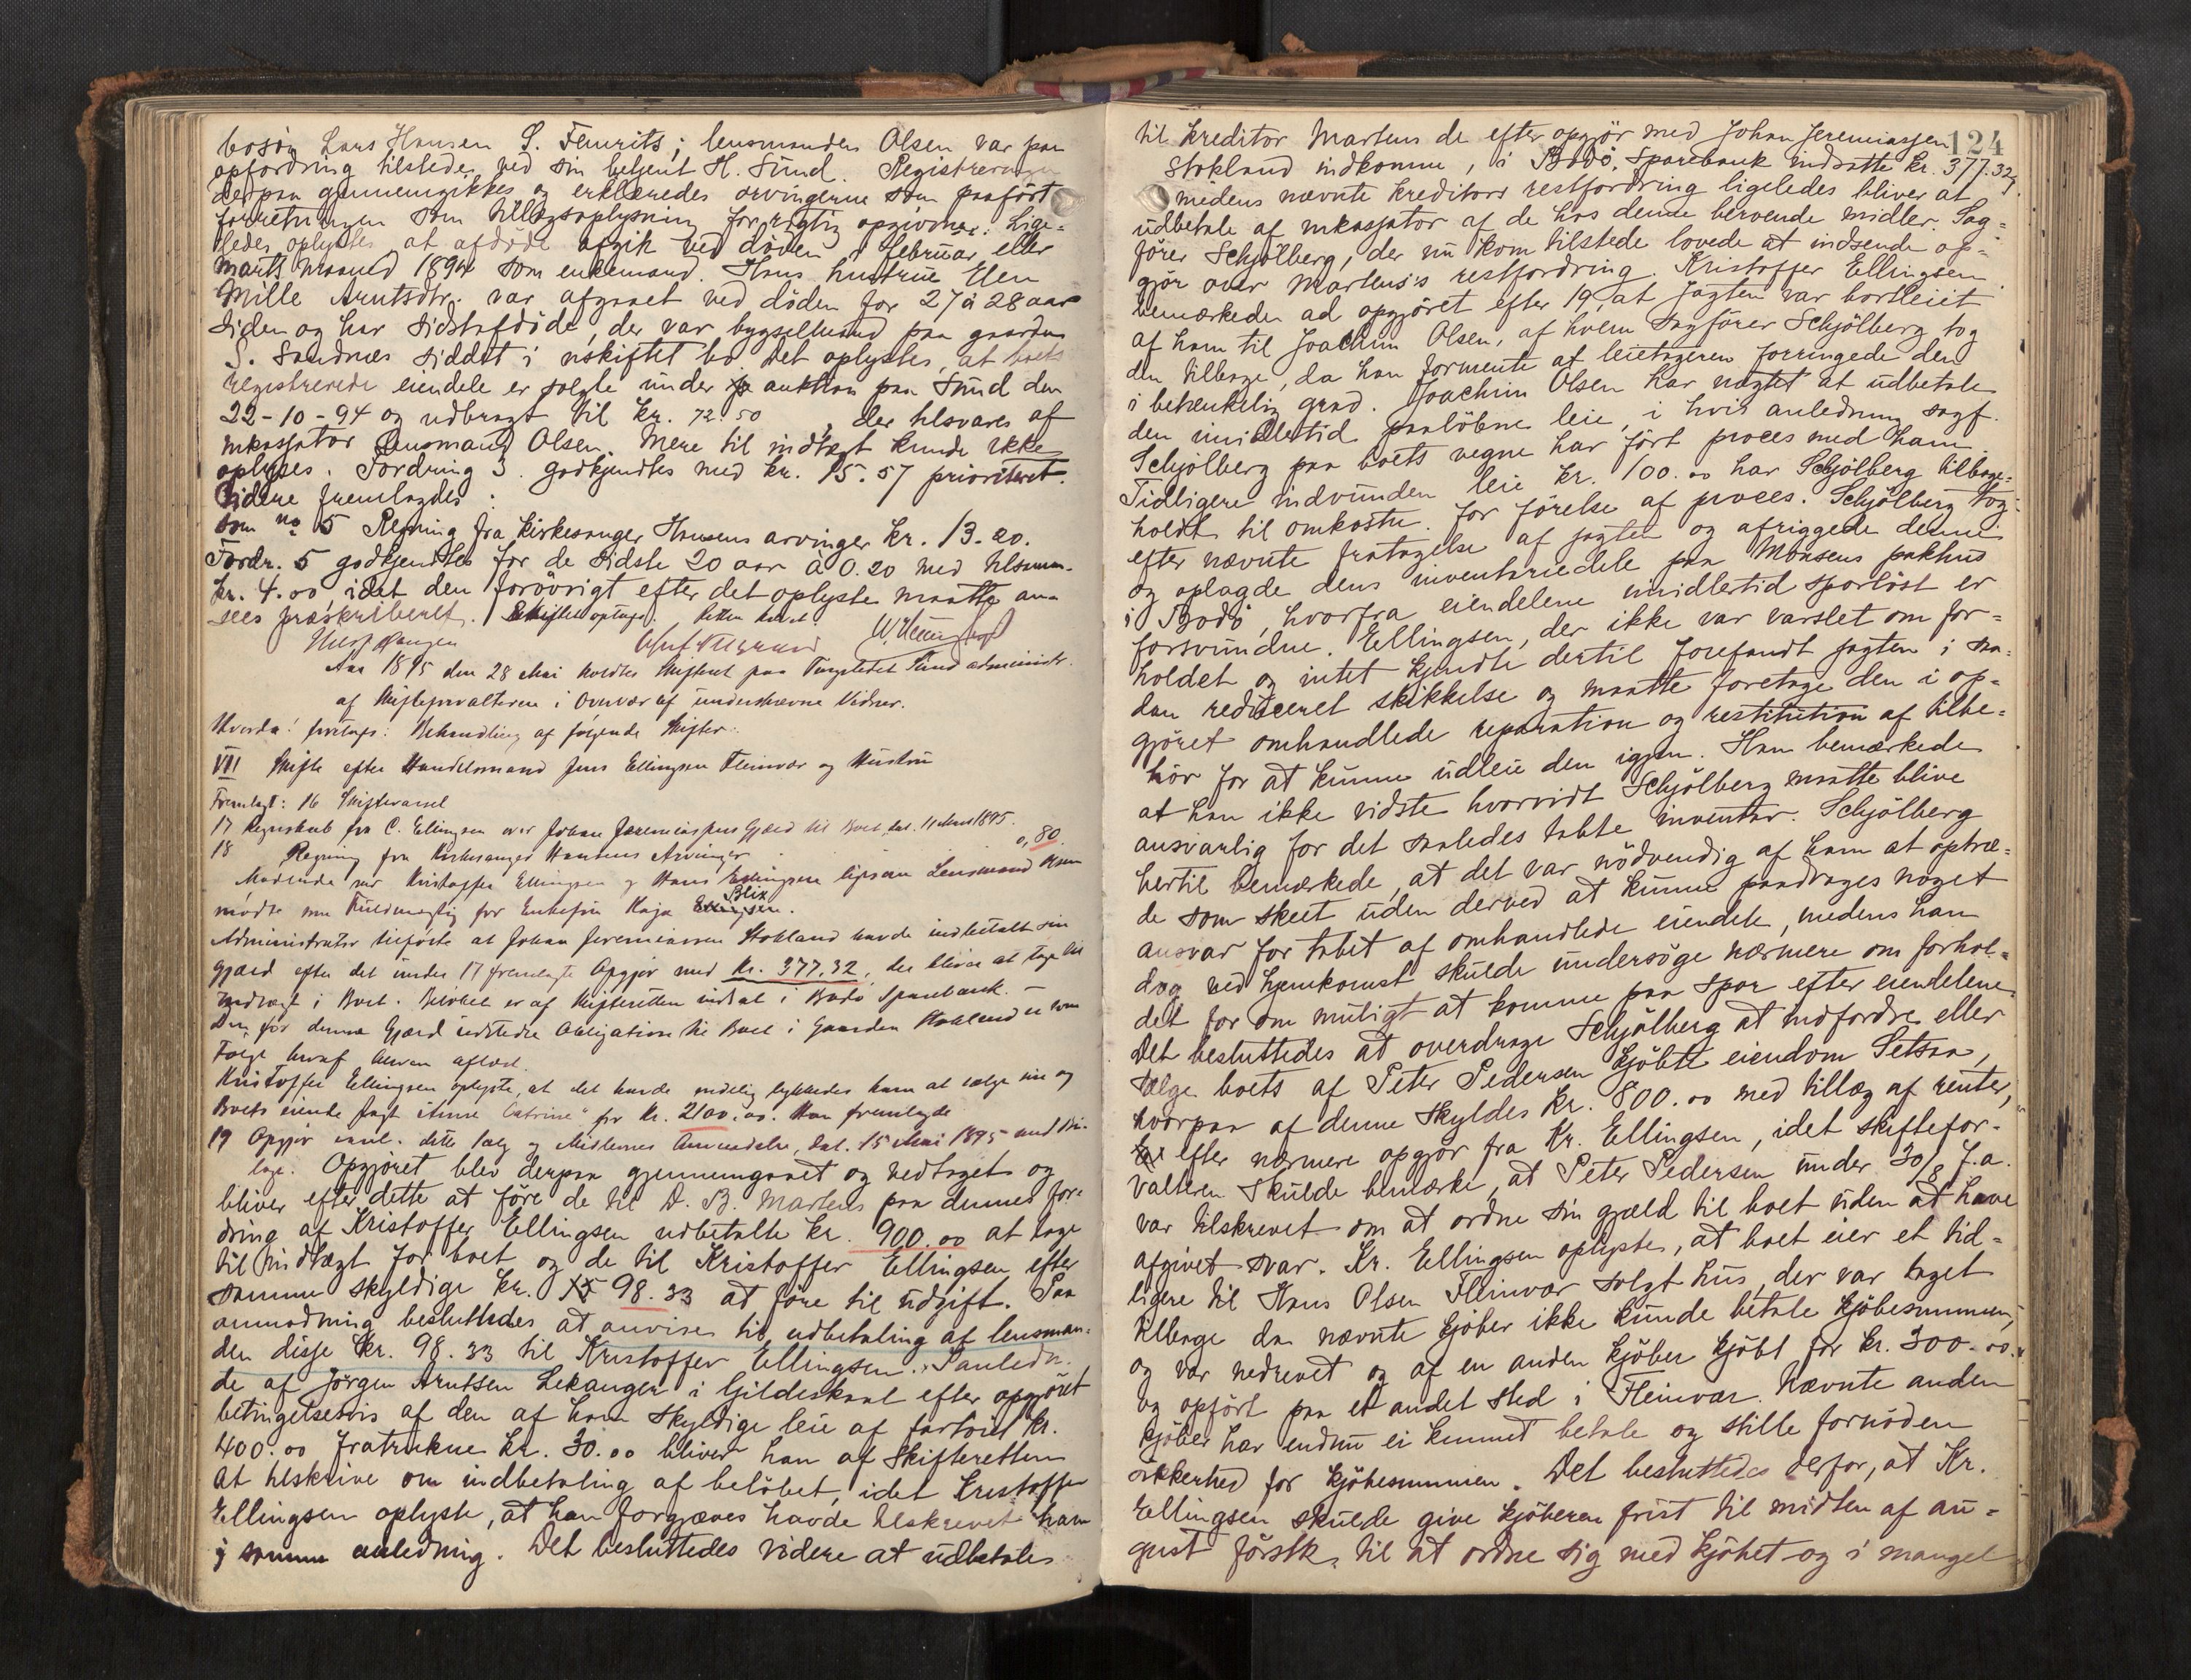 bosøn Lars Hansen S. Fenrits; lensmanden Olsen var paa
opfordring tilstede ved sin betjent H. Sund. Registreringen
derpaa gjennemgikkes og erklæredes arvingerne som paaført
forretningen som tillægsoplysning for rigtig opgivne. Lige-
ledes oplystes at afdøde afgik ved døden i februar eller
marts maaned 1894 som enkemand. Hans hustrue Elen
Mille Arntsdtr. var afgaaet ved døden for 27 à 28 aar
siden og har sidstafdøde, der var bygselmand paa gaarden
S. Sandnæs siddet i uskiftet bo. Det oplystes, at boets
registrerede eiendele er solgte under auktion paa Sund den
22-10-94 og udbragt til kr. 72.50, der tilsvares af
inkassator lensmand Olsen. Mere til indtægt kunde ikke
oplyses. Fordring 3 godkjendtes med kr. 15.57 prioriteret.
Videre fremlagdes:
som no 5 Regning fra kirkesanger Hansens arvinger kr. 13.20.
Fordr. 5 godkjendtes for de sidste 20 aar à 0.20 med tilsamm.
kr. 4.00 idet den forøvrigt efter det oplyste maatte an-
sees præskriberet. Skiftet optages. Retten hævet.
Aar 1895 den 28 Mai holdtes Skifteret paa Tingstedet Sund administr.
af Skifteforvalteren i Overvær af underskrevne Vidner.
Hvorda! foretoges: Behandling af følgende Skifter:
VII Skifte efter Handelsmand Jens Ellingsen Fleinvær og Hustru
Fremlagt: 16 Skiftevarsel
17 Regnskab fra C. Ellingsen over Johan Jeremiassens Gjæld til Boet, dat. 11 Mars 1895.
18 Regning fra Kirkesanger Hansens Arvinger 0,80
Mødende var Kristoffer Ellingsen og Hans Ellingsen ligesom Lensmand Olsen
mødte som Fuldmægtig for Enkefru Kaja Blix.
Administrator tilførte at Johan Jeremiassen Stokland havde indbetalt sin
Gjæld efter det under 17 fremlagte Opgjør med Kr. 377,32, der bliver at tage til
Indtægt i Boet. Beløbet er af Skifteretten indsat i Bodø Sparebank. –
Den for denne Gjæld udstedte Obligation til Boet i Gaarden Stokland er som
Følge heraf bleven aflæst.
Kristoffer Ellingsen oplyste, at det havde endelig lykkedes ham at sælge sin og
Boets eiende Jagt "Anne Catrine" for Kr. 2100.00. Han fremlagde
19 Opgjør anl. dette Salg og Midlernes Anvendelse, dat. 15 Mai 1895 med Bi-
lage. Opgjøret blev derpaa gjennemgaaet og vedtaget og
bliver efter dette at føre de til D. B. Martens paa dennes for-
dring af Kristoffer Ellingsen udbetalte kr. 900.00 at tage
til indtægt for boet og de til Kristoffer Ellingsen efter
samme skyldige kr. 98.33 at føre til udgift. Paa
anmodning besluttedes at anvises til udbetaling af lensman-
den disse kr. 98.33 til Kristoffer Ellingsen. I anledn.
de af Jørgen Arntsen Lekanger i Gildeskaal efter opgjøret
betingelsesvis af den af ham skyldige leie af fartøiet kr.
400.00 fratrukne kr. 30.00 bliver han af skifteretten
at tilskrive om indbetaling af beløbet, idet Kristoffer
Ellingsen oplyste, at han forgjæves havde tilskrevet ham
i samme anledning. Det besluttedes videre at udbetales
124
til kreditor Martens de efter opgjør med Johan Jeremiassen
Stokland indkomne, i Bodø Sparebank indsatte kr. 377.32,
medens nævnte kreditors restfordring ligeledes bliver at
udbetale af inkassator af de hos denne beroende midler. Sag-
fører Schjølberg, der nu kom tilstede lovede at indsende op-
gjør over Martens's restfordring. Kristoffer Ellingsen
bemærkede ad opgjøret efter 19, at jagten var bortleiet
af ham til Joachim Olsen, af hvem sagfører Schjølberg tog
den tilbage, da han formente at leietageren forringede den
i betænkelig grad. Joachim Olsen har nægtet at udbetale
den imidlertid paaløbne leie, i hvis anledning sagf.
Schjølberg paa boets vegne har ført proces med ham.
Tidligere indvunden leie kr. 100.00 har Schjølberg tilbage-
holdt til omkostn. for førelse af proces. Schjølberg tog
efter nævnte fratagelse af jagten og afriggede denne
og oplagde dens inventariedele paa Monsens pakhus
i Bodø, hvorfra eiendelene imidlertid sporløst er
forsvundne. Ellingsen, der ikke var varslet om for-
holdet og intet kjendte dertil forefandt jagten i saa-
dan reduceret skikkelse og maatte foretage den i op-
gjøret omhandlede reparation og restitution af tilbe-
hør for at kunne udleie den igjen. Han bemærkede
at han ikke vidste hvorvidt Schjølberg maatte blive
ansvarlig for det saaledes tabte inventar. Schjølberg
hertil bemærkede, at det var nødvendig af ham at optræ-
de som skeet uden derved at kunne paadrages noget
ansvar for tabet af omhandlede eiendele, medens han
dog ved hjemkomst skulde undersøge nærmere om forhol-
det for om muligt at komme paa spor efter eiendelene.
Det besluttedes at overdrage Schjølberg at indfordre eller
sælge boets af Peter Pedersen kjøbte eiendom Setsaa,
hvorpaa af denne skyldes kr. 800.00 med tillæg af renter,
efter nærmere opgjør fra Kr. Ellingsen, idet skiftefor-
valteren skulde bemærke, at Peter Pedersen under 30/8 f.a.
var tilskrevet om at ordne sin gjæld til boet uden at have
afgivet svar. Kr. Ellingsen oplyste, at boet eier et tid-
ligere til Hans Olsen Fleinvær solgt hus, der var taget
tilbage da nævnte kjøber ikke kunde betale kjøbesummen,
og var nedrevet og af en anden kjøber kjøbt for kr. 300.00.
og opført paa et andet sted i Fleinvær. Nævnte anden
kjøber har endnu ei kunnet betale og stille fornøden
sikkerhed for kjøbesummen. Det besluttedes derfor, at Kr.
Ellingsen skulde give kjøberen frist til midten af au-
gust førstk. til at ordne sig med kjøbet og i mangel